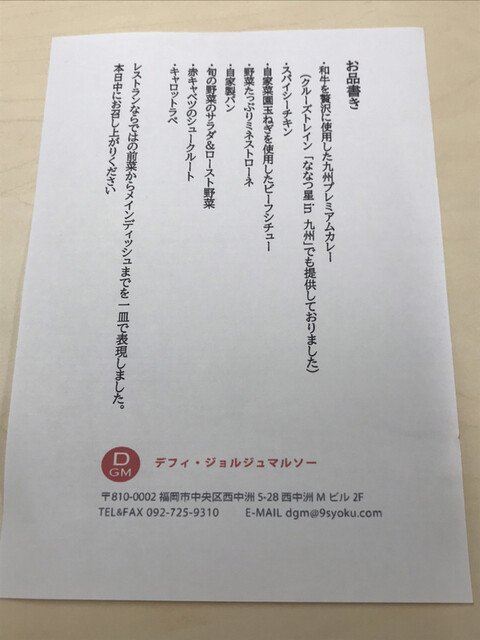 お品書き
・和牛を贅沢に使用した九州プレミアムカレー
（クルーズトレイン「ななつ星 in 九州」でも提供しておりました）
・スパイシーチキン
・自家菜園玉ねぎを使用したビーフシチュー
・野菜たっぷりミネストローネ
・自家製パン
・旬の野菜のサラダ&ロースト野菜
・赤キャベツのシュークルート
・キャロットラペ
レストランならではの前菜からメインディッシュまでを一皿で表現しました。
本日中にお召し上がりください
D
GM
デフィ・ジョルジュマルソー
〒810-0002 福岡市中央区西中洲 5-28 西中洲 M ビル 2F
TEL&FAX 092-725-9310 E-MAIL dgm@9syoku.com